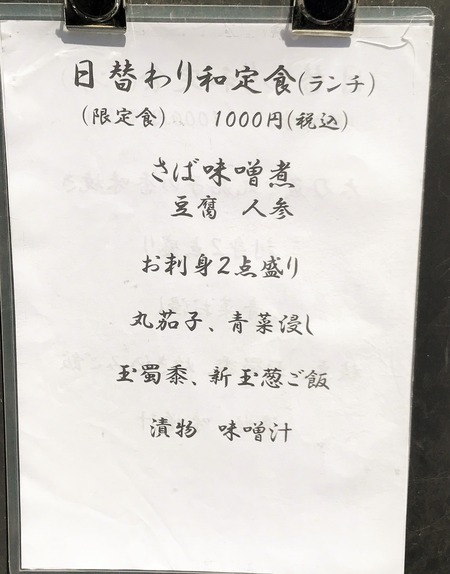 日替わり和定食(ランチ)
(限定食)、1000円(税込)
さば味噌煮
豆腐 人参
お刺身2点盛り
丸茄子、青菜浸し
玉蜀黍、新玉葱ご飯
漬物 味噌汁